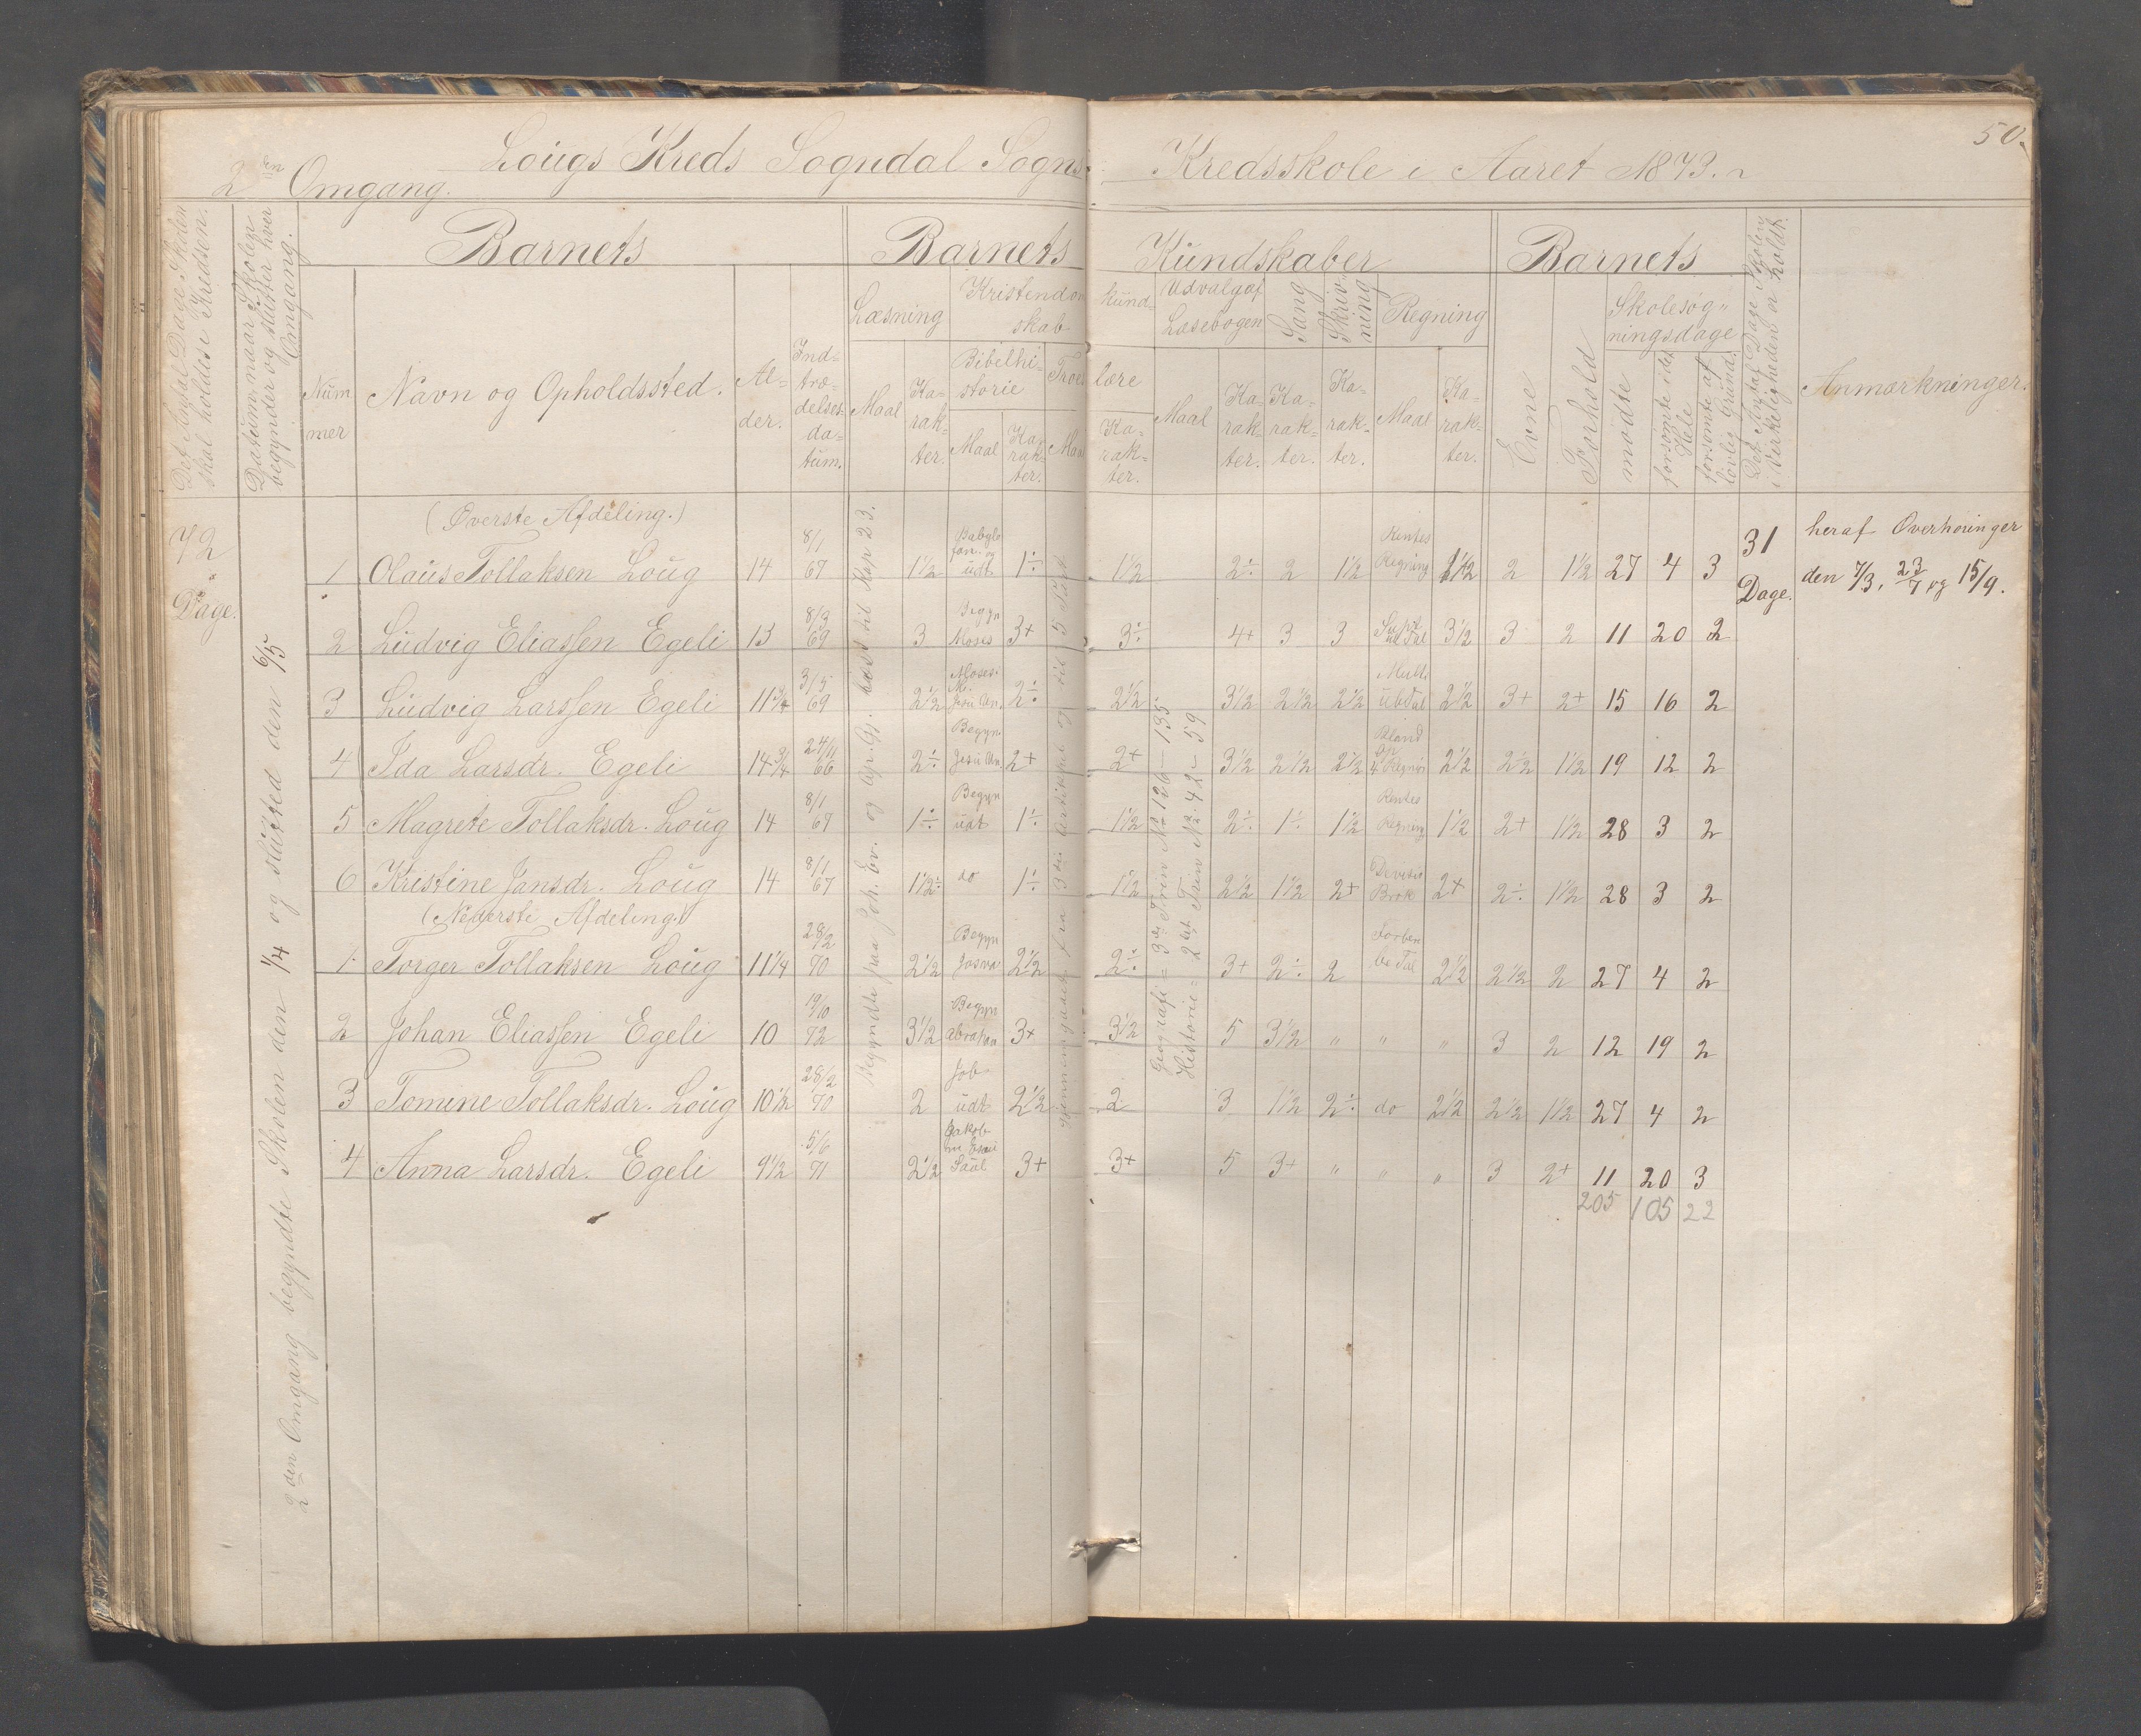 50.
2den Omgang. Lougs Kreds Sogndal Sogns Kredsskole i Aaret 1873.
Det Antal Dage Skolen skal holdes i Kredsen.
Datum, naar Skolen begynder og slutter hver Omgang.
Barnets
Barnets Kundskaber
Barnets
Det Antal Dage Skolen i Virkeligheden er holdt.
Anmærkninger.
Nummer
Navn og Opholdssted.
Alder.
Indtrædelsesdatum.
Læsning
Maal
Karakter.
Kristendomskundskab
Bibelhistorie
Maal
Karakter.
Troeslære
Maal
Karakter.
Udvalg af Læsebogen
Maal
Karakter.
Sang
Karakter.
Skrivning
Karakter.
Regning
Maal
Karakter.
Evne
Forhold
Skolesøgningsdage
mødte
forsømte i det Hele
forsømte af lovlig Grund.
72 Dage.
2den Omgang begyndte Skolen den 1/4 og slutted den 6/5
Begyndte paa Joh. Ev. og Ap. Gj. læst til Kap 23.
Gjennemgaaet fra 3die Artikkel og til 5
Geografi = 3die Trin No 126 – 135.
Historie = 2det Trin No 42 – 59
(Øverste Afdeling.)
1 Olaus Tollaksen Loug 14 8/1 67 1½ Babylo fan. og udt 1÷ 1½ 2÷ 2 1½ Rentes Regning 1½ 2 1½ 27 4 3 31 Dage. heraf Overhøringer den 7/3, 23/7 og 15/9.
2 Ludvig Eliassen Egeli 13 8/3 69 3 Begyn Moses 3+ 3÷ 4+ 3 3 3½ 3 2 11 20 2
3 Ludvig Larssen Egeli 11¾ 3/5 69 2½ Moses. Jesu An. 2÷ 2½ 3½ 2½ 2½ Multi ubTal 2½ 3+ 2+ 15 16 2
4 Ida Larsdr. Egeli 14¾ 24/11 66 2÷ Begyn. Jesu An. 2+ 2+ 3½ 2½ 2½ Bland 2½ 2½ 1½ 19 12 2
5 Magrete Tollaksdr. Loug 14 8/1 67 1÷ Begyn udt 1÷ 1½ 2÷ 1÷ 1½ Rentes Regning 1½ 2+ 1½ 28 3 2
6 Kristine Jansdr. Loug 14 8/1 67 1½÷ do 1÷ 1½ 2½ 1½ 2+ Devisi Brøk 2+ 2÷ 1½ 28 3 2
(Nederste Afdeling.)
1 Torger Tollaksen Loug 11¼ 28/2 70 2½ Begyn Josva 2½ 2÷ 3+ 2÷ 2 2½ 2½ 2 27 4 2
2 Johan Eliassen Egeli 10 19/10 72 3½ Begyn abraham 3+ 3½ 5 3½ " " " 3 2 12 19 2
3 Tomine Tollaksdr. Loug 10½ 28/2 70 2 Job udt 2½ 2 3 1½ 2÷ do 2½ 2½ 1½ 27 4 2
4 Anna Larsdr. Egeli 9½ 5/6 71 2½ Jakob Saul 3+ 3+ 5 3+ " " " 3 2+ 11 20 3
205 105 22